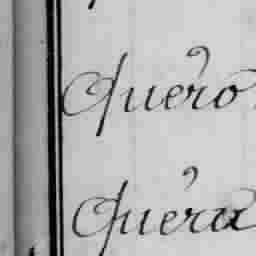 Quero
Quera